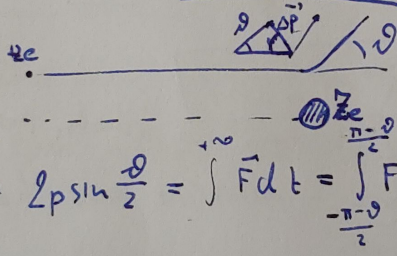 ϑ Δp⃗ ϑ
ze
Ze
2p sin ϑ/2 = ∫^{+∞} F⃗dt = ∫_{-\frac{π-ϑ}{2}}^{\frac{π-ϑ}{2}} F